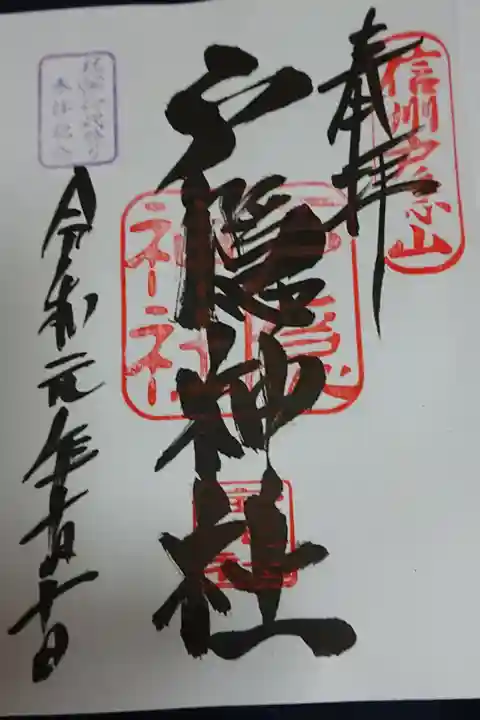 奉拝
信州戸隠山
戸隠神社
戸隠神社
令和元年十一月十日